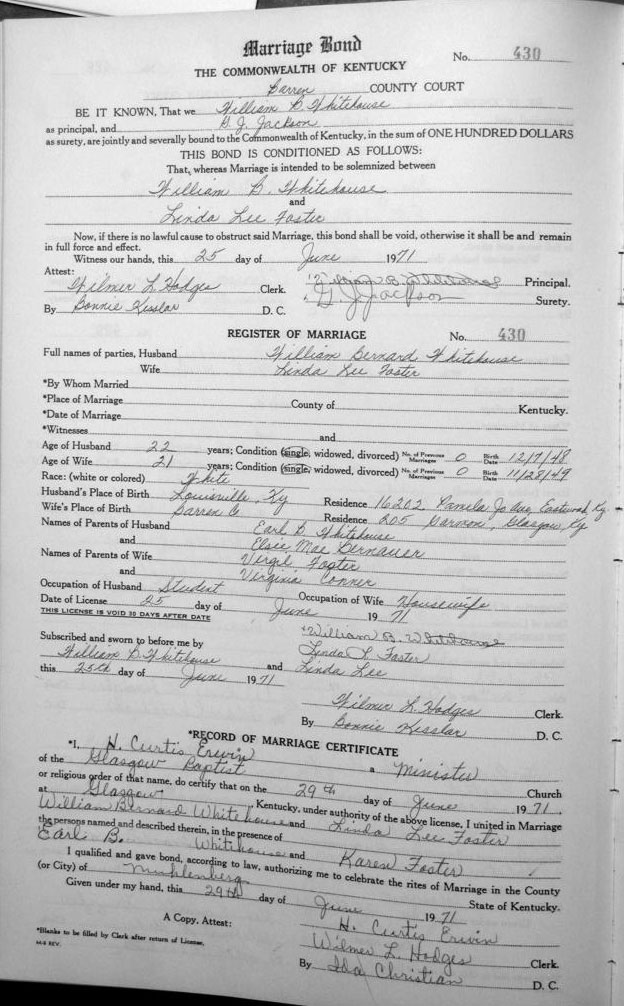 Marriage Bond
No. 430
THE COMMONWEALTH OF KENTUCKY
Barren COUNTY COURT
BE IT KNOWN, That we William B. Whitehouse
as principal, and G. J. Jackson
as surety, are jointly and severally bound to the Commonwealth of Kentucky, in the sum of ONE HUNDRED DOLLARS
THIS BOND IS CONDITIONED AS FOLLOWS:
That, whereas Marriage is intended to be solemnized between
William B. Whitehouse
and
Linda Lee Foster
Now, if there is no lawful cause to obstruct said Marriage, this bond shall be void, otherwise it shall be and remain
in full force and effect.
Witness our hands, this 25 day of June 1971
Attest:
Wilmer L. Hodges Clerk. William B. Whitehouse Principal.
By Bonnie Kesslar D. C. G J Jackson Surety.
REGISTER OF MARRIAGE No. 430
Full names of parties, Husband William Bernard Whitehouse
Wife Linda Lee Foster
*By Whom Married
*Place of Marriage County of Kentucky.
*Date of Marriage
*Witnesses and
Age of Husband 22 years; Condition (single, widowed, divorced) No. of Previous Marriages 0 Birth Date 12/7/48
Age of Wife 21 years; Condition (single, widowed, divorced) No. of Previous Marriages 0 Birth Date 11/28/49
Race: (white or colored) White
Husband's Place of Birth Louisville, Ky Residence 16202 Pamela Jo Ave, Eastwood, Ky
Wife's Place of Birth Barren Co Residence 205 Garmon, Glasgow, Ky
Names of Parents of Husband Earl B Whitehouse
and Elsie Mae Bernauer
Names of Parents of Wife Vergil Foster
and Virginia Conner
Occupation of Husband Student Occupation of Wife Housewife
Date of License 25 day of June 1971
THIS LICENSE IS VOID 30 DAYS AFTER DATE
Subscribed and sworn to before me by William B. Whitehouse
William B Whitehouse and Linda L. Foster
this 25th day of June 1971 Linda Lee
Wilmer L. Hodges Clerk.
By Bonnie Kesslar D. C.
*RECORD OF MARRIAGE CERTIFICATE
*I, H. Curtis Erwin a Minister
of the Glasgow Baptist Church
or religious order of that name, do certify that on the 29th day of June 1971,
at Glasgow, Kentucky, under authority of the above license, I united in Marriage
William Bernard Whitehouse and Linda Lee Foster
the persons named and described therein, in the presence of
Earl B. Whitehouse and Karen Foster
I qualified and gave bond, according to law, authorizing me to celebrate the rites of Marriage in the County
(or City) of Muhlenberg State of Kentucky.
Given under my hand, this 29th day of June 1971
H. Curtis Erwin
A Copy, Attest: Wilmer L. Hodges Clerk.
By Ida Christian D. C.
*Blanks to be filled by Clerk after return of License.